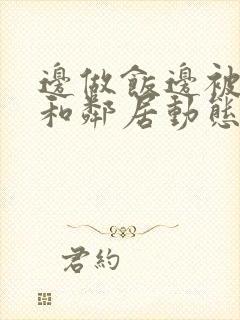 邊做飯邊被
和鄰居動態
君約